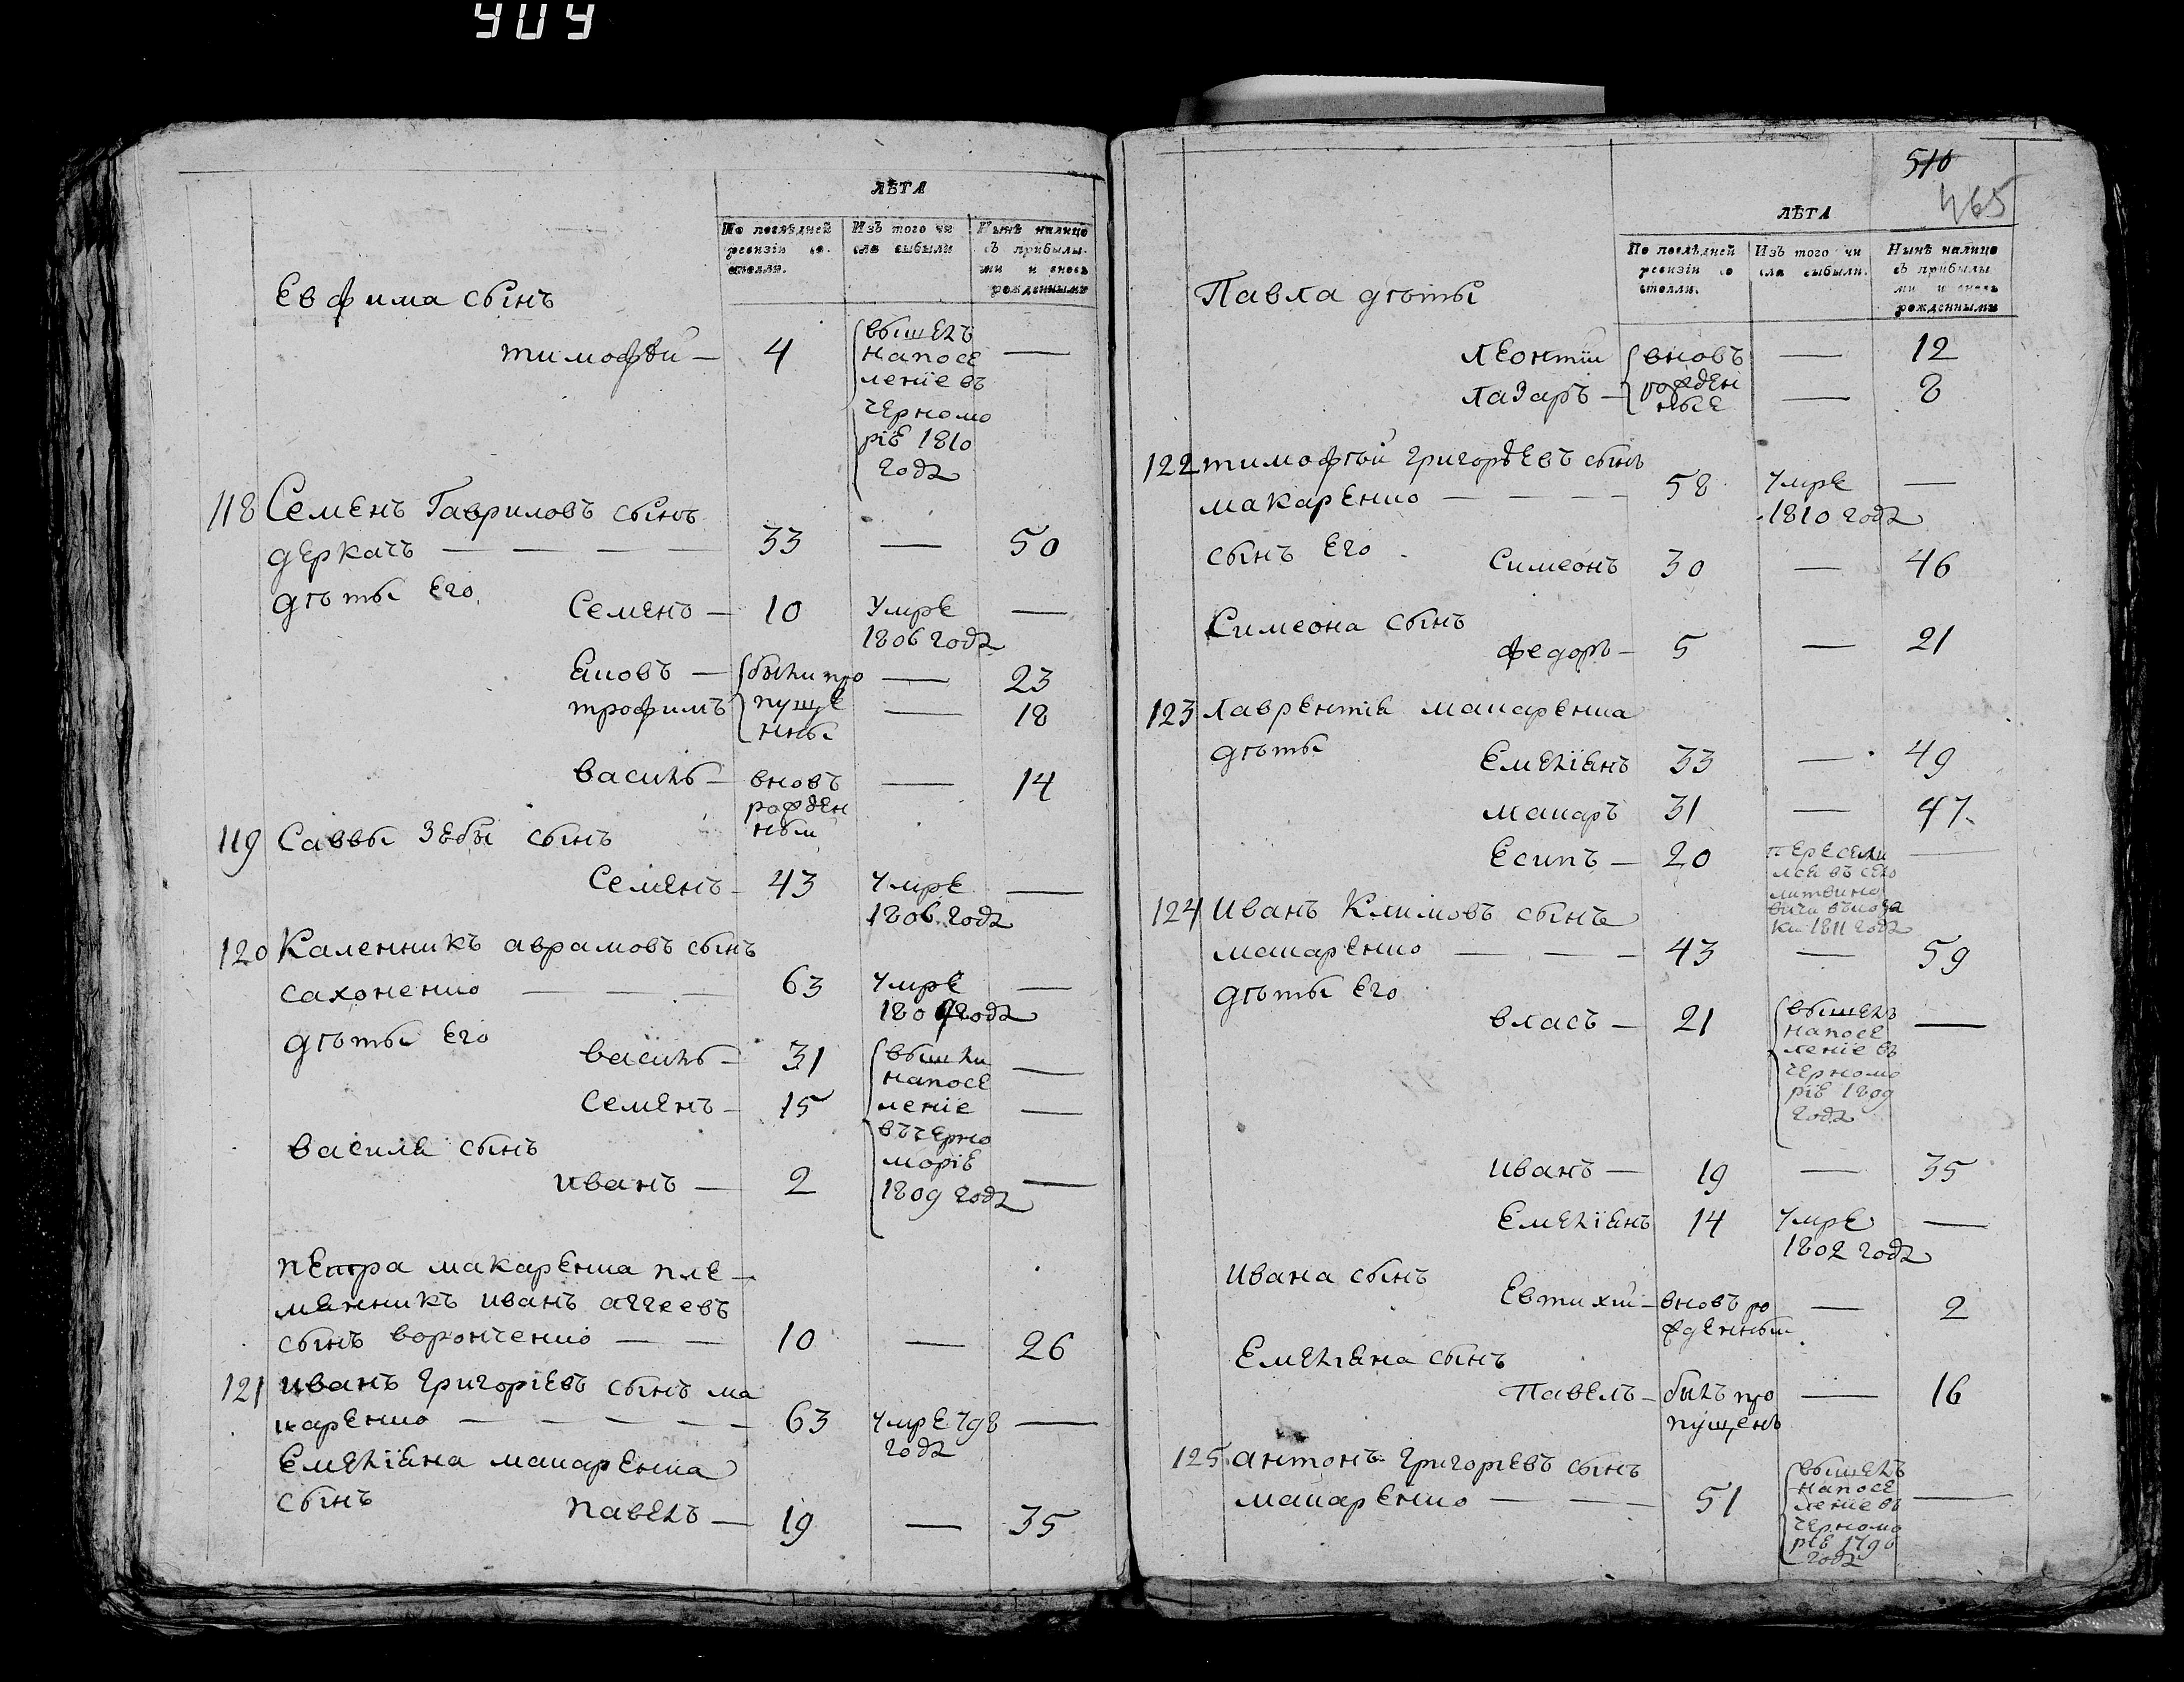 909
ЛѢТА
По послѣдней ревизіи состояли.
Изъ того числа выбыли
Нынѣ налицо съ прибылыми и вновь рожденными
Евфима сынъ
тимофѣй — 4 вышелъ —
напосе
леніе въ
черномо
ріе 1810
годꙋ
118 Семенъ Гавриловъ сынъ
деркачъ — — — — 33 — 50
дѣты его
Семенъ — 10 Умре —
1806 годꙋ
Яковъ — были про — 23
трофимъ пуще — 18
нны
василь — вновъ — 14
рожден
ный
119 Саввы Зебы сынъ
Семенъ — 43 Умре —
1806 годꙋ
120 Каленникъ аврамовъ сынъ
сахоненко — — — 63 Умре —
годꙋ
дѣты его
василь — 31 вышли —
напосе
Семенъ — 15 леніе —
въчерно
василя сынъ
моріе
иванъ — 2 —
1809 годꙋ
петра макаренка пле—
мянникъ иванъ аггеевъ
сынъ воронченко — — 10 — 26
121 иванъ григоріевъ сынъ ма
каренко — — — — — 63 Умре 798 —
годꙋ
Емелiяна макаренка
сынъ
павелъ — 19 — 35
510
465
ЛѢТА
По послѣдней ревизіи состояли.
Изъ того числа выбыли.
Нынѣ налицо съ прибылыми и вновь рожденными
Павла дѣты
леонтій вновъ — 12
лазаръ — рожден — 8
ные
122 тимофѣй григорѣевъ сынъ
макаренко — — — — 58 Умре —
1810 годꙋ
сынъ его
Симеонъ 30 — 46
Симеона сынъ
федоръ — 5 — 21
123 лаврентія макаренка
дѣты
Емелiянъ 33 — 49
макаръ 31 — 47
Есипъ — 20 пересели —
лся въ село
литвино
вичи
1811 годꙋ
124 иванъ Климовъ сынъ
макаренко — — — 43 — 59
дѣты его
власъ — 21 вышелъ —
напосе
леніе въ
черномо
ріе 1809
годꙋ
иванъ — 19 — 35
Емелiянъ 14 Умре —
1802 годꙋ
ивана сынъ
Евтихій — вновъ ро — 2
жденный
Емелiяна сынъ
Павелъ — былъ про — 16
пущенъ
125 антонъ григоріевъ сынъ
макаренко — — — 51 вышелъ —
напосе
леніе въ
черномо
ріе 1790
годꙋ